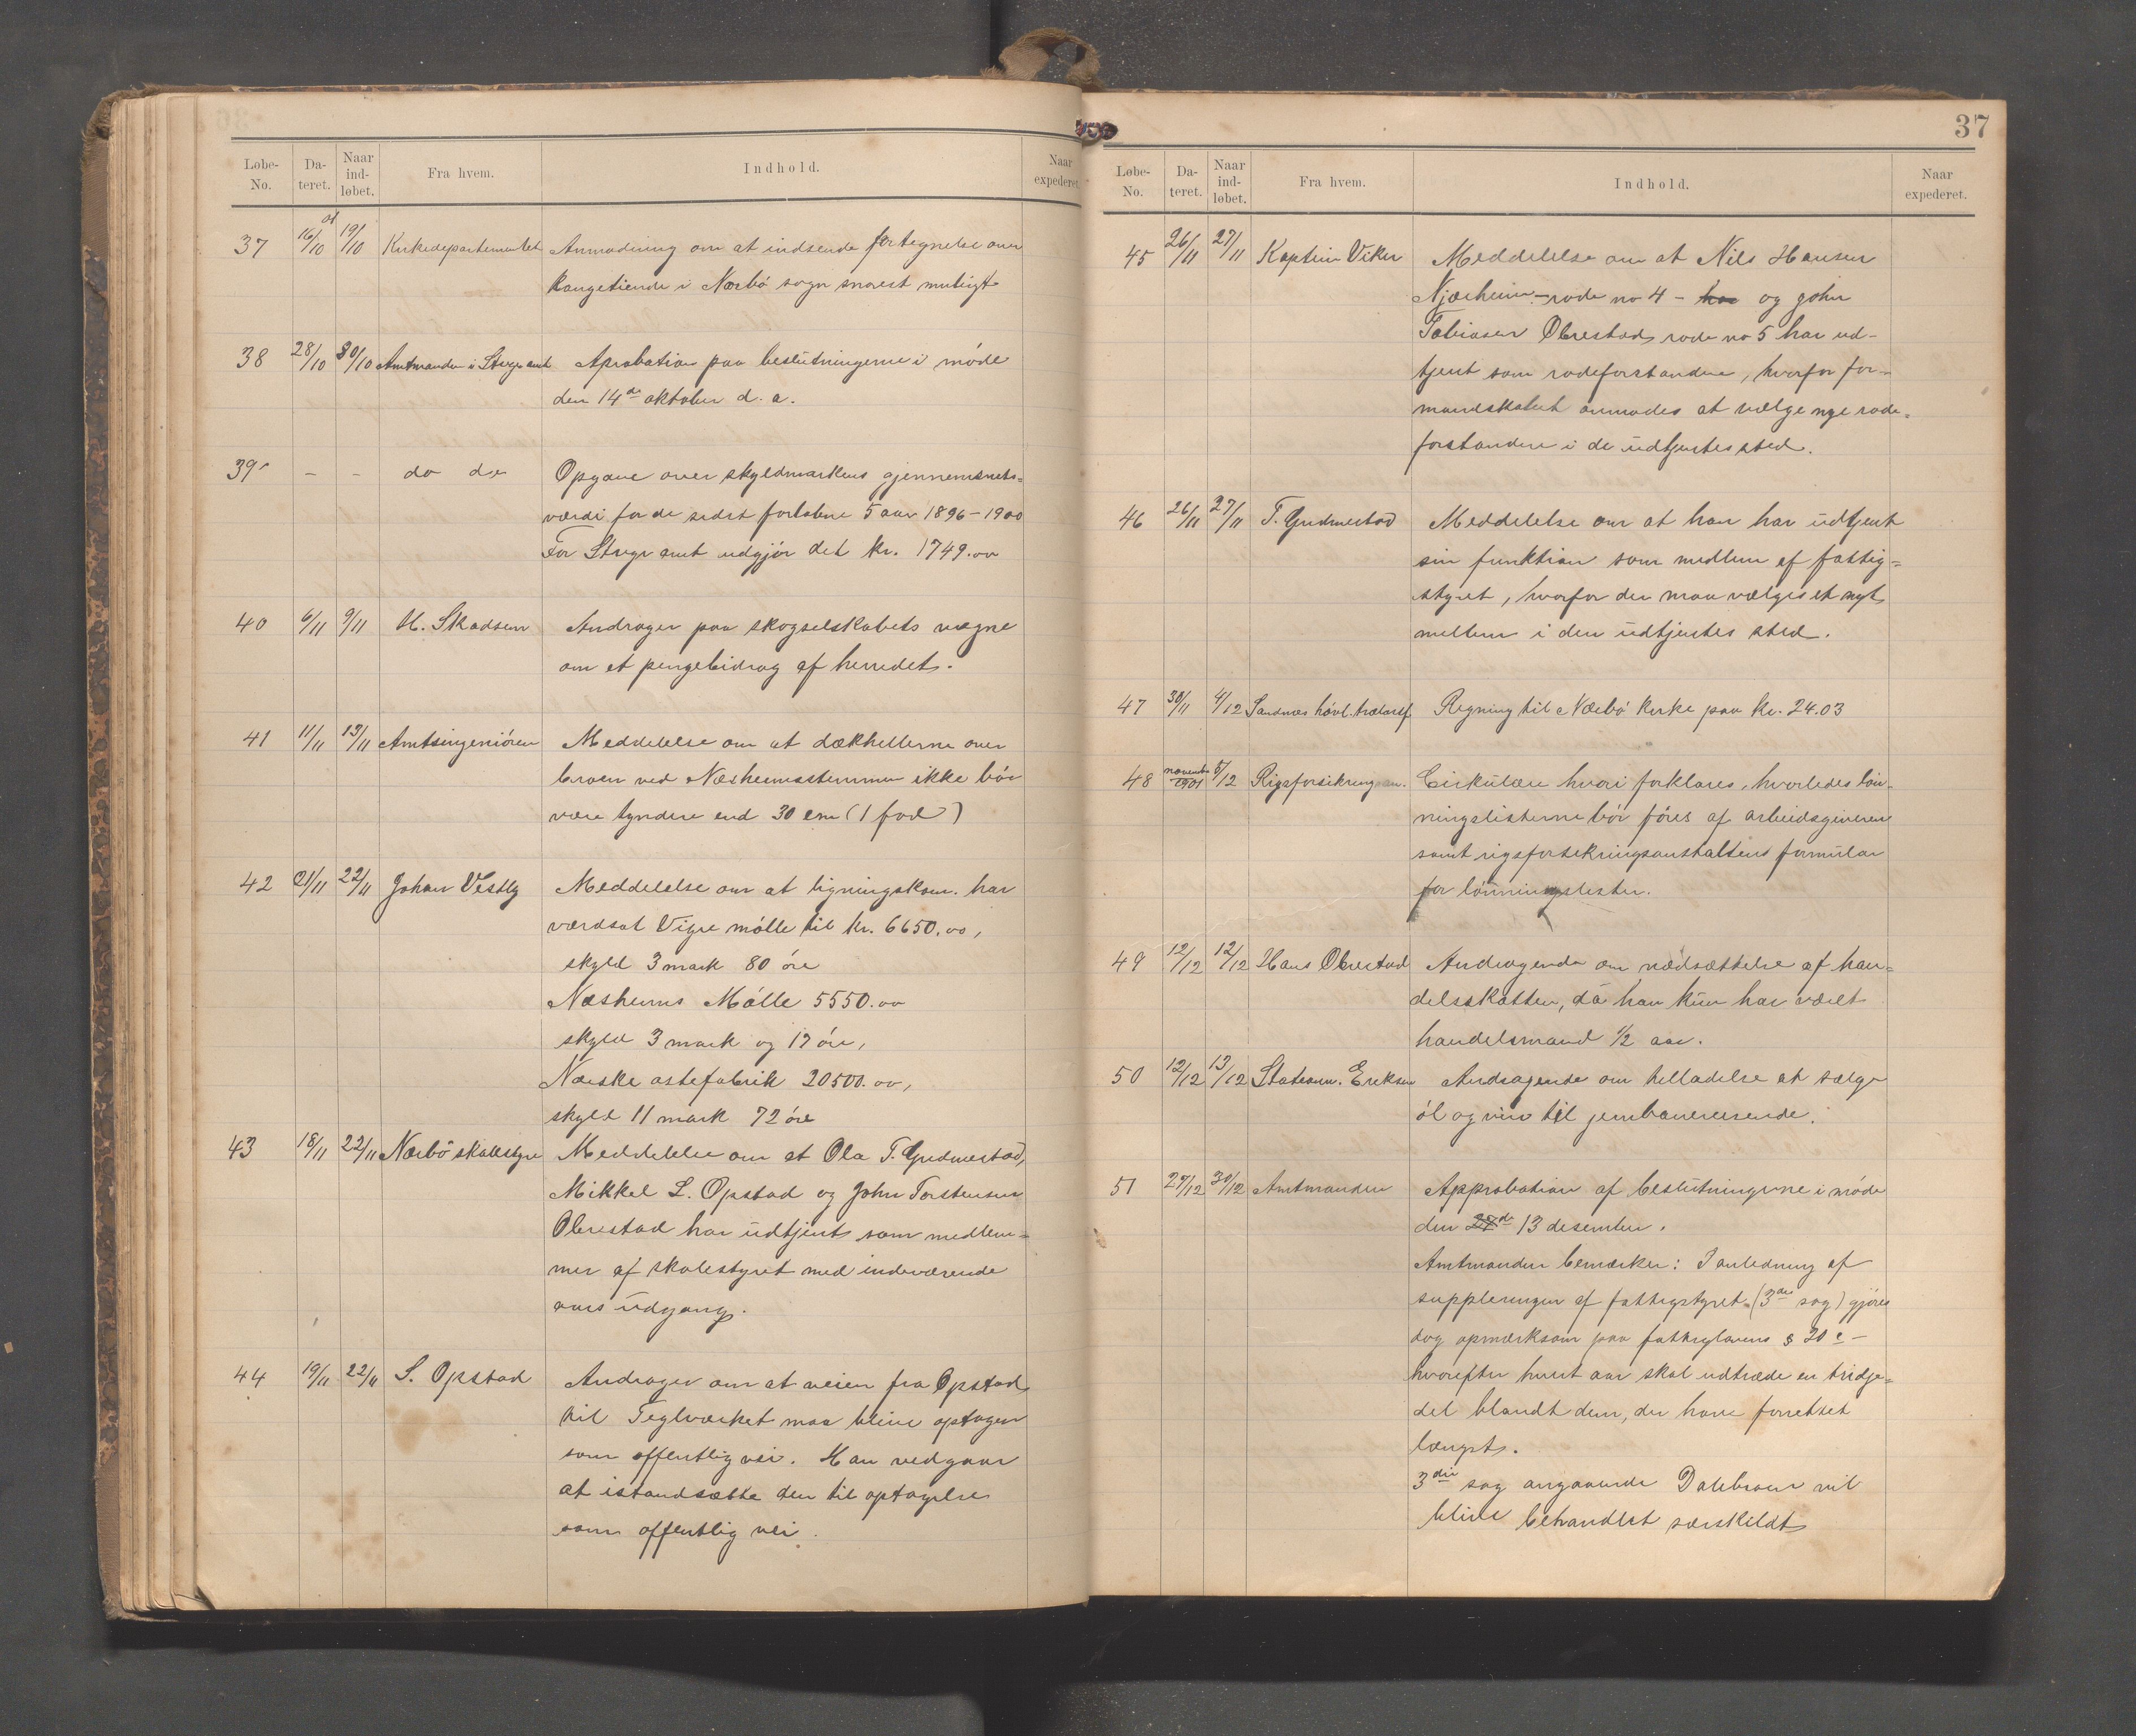 Løbe-No. Da-teret. Naar ind-løbet. Fra hvem. Indhold. Naar expederet.
37 16/10 01 19/10 Kirkedepartementet Anmodning om at indsende fortegnelse over
kongetiende i Nærbö sogn snarest muligt
38 28/10 30/10 Amtmanden i Stvgr amt Aprobation paa beslutningerne i möde
den 14de oktober d. a.
39 - - do do Opgave over skyldmarkens gjennemsnits=
værdi for de sidst forløbne 5 aar 1896-1900
For Stvgr amt udgjör det kr. 1749.00
40 6/11 9/11 H. Skadsem Andrager paa skogselskabets vegne
om et pengebidrag af herredet.
41 11/11 13/11 Amtsingeniören Meddelelse om at dækhellerne over
broen ved Næsheimsstemmen ikke bör
være tyndere end 30 cm (1 fod)
42 21/11 22/11 Johan Vestly Meddelelse om at ligningskom. har
værdsat Vigre mölle til kr. 6650.00,
skyld 3 mark 80 öre
Næsheims Mölle 5550.00
skyld 3 mark og 17 öre,
Nærske ostefabrik 20500.00,
skyld 11 mark 72 öre
43 18/11 22/11 Nærbö skolestyre Meddelelse om at Ola T. Gudmestad,
Mikkel L. Opstad og John Torstensen
Obrestad har udtjent som medlem=
mer af skolestyret med indeværende
aars udgang.
44 19/11 22/11 S. Opstad Andrager om at veien fra Opstad
til Teglværket maa blive optagen
som offentlig vei. Han vedgaar
at istandsætte den til optagelse
som offentlig vei.
37
Løbe-No. Da-teret. Naar ind-løbet. Fra hvem. Indhold. Naar expederet.
45 26/11 27/11 Kaptein Viker Meddelelse om at Nils Hansen
Njærheim - rode no 4 - har og John
Tobiasen Obrestad rode no 5 har ud-
tjent som rodeforstandere, hvorfor for-
mandskabet anmodes at vælge nye rode=
forstandere i de udtjentes sted.
46 26/11 27/11 T. Gudmestad Meddelelse om at han har udtjent
sin funktion som medlem af fattig=
styret, hvorfor der maa vælges et nyt
medlem i den udtjentes sted.
47 30/11 4/12 Sandnes hövl. Regning til Nærbö kirke paa kr. 24.03
48 novemb 1901 5/12 Rigsforsikringsan. Cirkulære hvori forklares, hvorledes lön-
ningslisterne bör föres af arbeidsgiveren
samt rigsforsikringsanstaltens formular
for lönningslister.
49 12/12 12/12 Hans Obrestad Andragende om nedsættelse af han=
delsskatten, da han kun har været
handelsmand 1/2 aar.
50 12/12 13/12 Stationm. Eriksen Andragende om tilladelse at sælge
öl og vin til jernbanereisende.
51 27/12 30/12 Amtmanden Approbation af beslutningerne i möde
den 27de 13 desember.
Amtmanden bemærker: I anledning af
suppleringen af fattigstyret (3die sag) gjöres
dog opmærksom paa fattiglovens § 20 c -
hvorefter hvert aar skal udtræde en tridje=
del blandt dem, der have forrettet
længst.
3die sag angaaende Dalebroen vil
blive behandlet særskildt